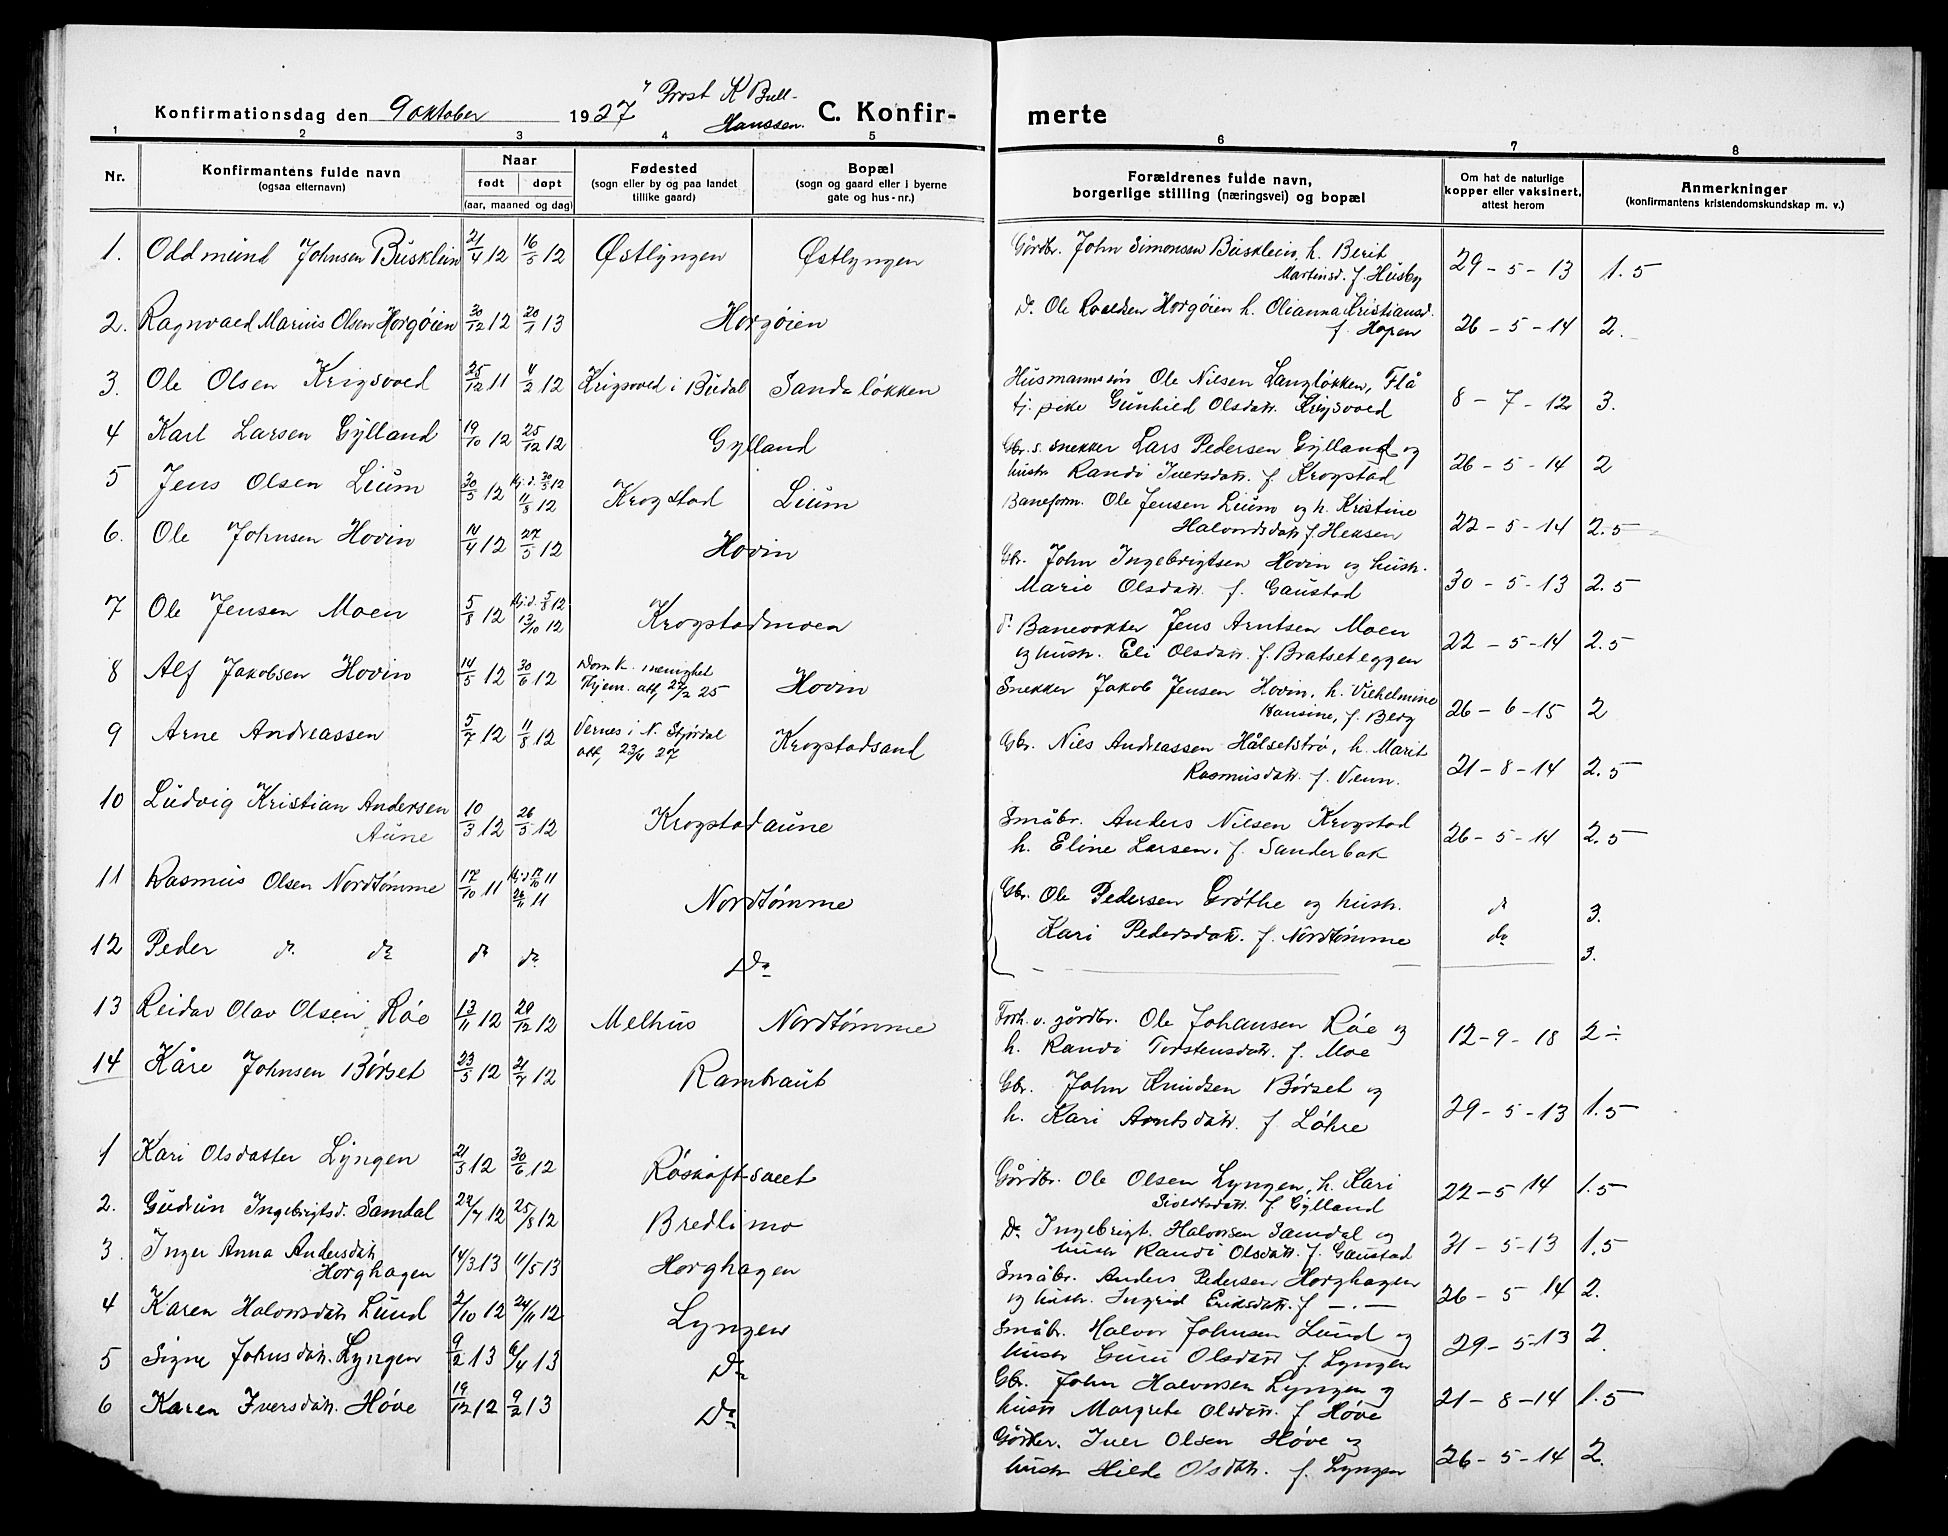 Konfirmationsdag den 9 oktober 1927 Prost K Bull-
Hanssen.
C. Konfir-
merte
1 2 3 4 5 6 7 8
Nr.
Konfirmantens fulde navn
(ogsaa efternavn)
Naar
født døpt
(aar, maaned og dag)
Fødested
(sogn eller by og paa landet
tillike gaard)
Bopæl
(sogn og gaard eller i byerne
gate og hus-nr.)
Forældrenes fulde navn,
borgerlige stilling (næringsvei) og bopæl
Om hat de naturlige
kopper eller vaksinert,
attest herom
Anmerkninger
(konfirmantens kristendomskundskap m. v.)
1. Oddmund Johnsen Busklein 21/4 12 16/5 12 Østlyngen Østlyngen
Gårdbr. John Simonssen Busklein, h. Berit
Martinsd. f. Husby 29-5-13 1.5
2. Ragnvald Marius Olsen Horgøien 30/12 12 20/1 13 Horgøien
Do. Ole Roaldsen Horgøien h. Olianna Kristiansd.
f. Hopen 26-5-14 2.
3. Ole Olsen Krigsvold 25/12 11 11/2 12 Krigsvold i Budal Sandsløkken
Husmannssøn Ole Nilsen Langløkken, Flå
tj. pike Gunhild Olsdatr. Krigsvold 8-7-12 3.
4 Karl Larsen Gylland 19/10 12 25/12 12 Gylland
Gbr. s. snekker Lars Pedersen Gylland og
hustr. Randi Iversdatr. f. Krogstad 26-5-14 2
5 Jens Olsen Lium 30/5 12 Hj.d. 30/5 12
11/8 12 Krogstad Lium
Baneform. Ole Jensen Lium og h. Kristine
Halvordsdatr. f. Heksen 22-5-14 2.5
6. Ole Johnsen Hovin 14/4 12 27/5 12 Hovin
Gbr. John Ingebrigtsen Hovin og hustr.
Marie Olsdatr. f. Gaustad 30-5-13 2.5
7 Ole Jensen Moen 5/8 12 Hj.d. 5/8 12
13/10 12 Krogstadmoen
Banevokter Jens Arntsen Moen
og hustr. Eli Olsdatr. f. Bratseteggen 22-5-14 2.5
8 Alf Jakobsen Hovin 14/5 12 30/6 12 Domk. menighet
Trhjem. att. 27/2 25 Hovin
Snekker Jakob Jensen Hovin, h. Vilhelmine
Hansine, f. Berg 26-6-15 2
9 Arne Andreassen 5/7 12 11/8 12 Vernes i N. Stjørdal
att. 23/4 27 Krogstadsand
Gbr. Nils Andreassen Hålsetstrø, h. Marit
Rasmusdatr. f. Venn. 21-8-14 2.5
10 Ludvig Kristian Andersen
Aune 10/3 12 26/5 12 Krogstadaune
Småbr. Anders Nilsen Krogstad
h. Eline Larsen. f. Sanderbak 26-5-14 2.5
11 Rasmus Olsen Nordtømme 17/10 11 Hj.d 17/10 11
26/11 11 Nordtømme
Gbr. Ole Pedersen Grøthe og hustr.
Kari Pedersdatr. f. Nordtømme do 3.
12 Peder do do do do Do do 3.
13 Reidar Olav Olsen Røe 13/11 12 29/12 12 Melhus Nordtømme
Forh. v. gårdbr. Ole Johansen Røe og
h. Randi Torstensdatr. f. Moe 12-9-18 2÷
14 Kåre Johnsen Børset 23/5 12 21/7 12 Rambraut
Gbr. John Knudsen Børset og
h. Kari Arntsdatr. f. Løhre 29-5-13 1.5
1 Kari Olsdatter Lyngen 21/3 12 30/6 12 Røskaftsveet
Gårdbr. Ole Olsen Lyngen, h. Kari
Sivertsdatr. f. Gylland 22-5 14 1.5
2. Gudrun Ingebrigtsd. Samdal 22/7 12 25/8 12 Bredlimo
Do. Ingebrigt Halvorsen Samdal og
hustr Randi Olsdatr. f. Gaustad 31-5-13 1.5
3. Inger Anna Andersdatr.
Horghagen 14/3 13 11/5 13 Horghagen
Småbr. Anders Pedersen Horghagen
og hustr. Ingrid Eriksdatr. f -.- 26-5 14 2.
4 Karen Halvorsdatr. Lund 2/10 12 24/11 12 Lyngen
Småbr. Halvor Johnsen Lund og
hustr Guru Olsdatr f. Lyngen 29-5-13 2.
5 Signe Johnsdatr. Lyngen 9/2 13 6/4 13 Do
Gbr. John Halvorsen Lyngen og
hustr Margrete Olsdatr. f Høve 21-8-14 1.5
6 Karen Iversdatr. Høve 19/12 12 9/2 13 Do
Gårdbr. Iver Olsen Høve og
hustr Hilde Olsdatr. f. Lyngen 26-5-14 2.